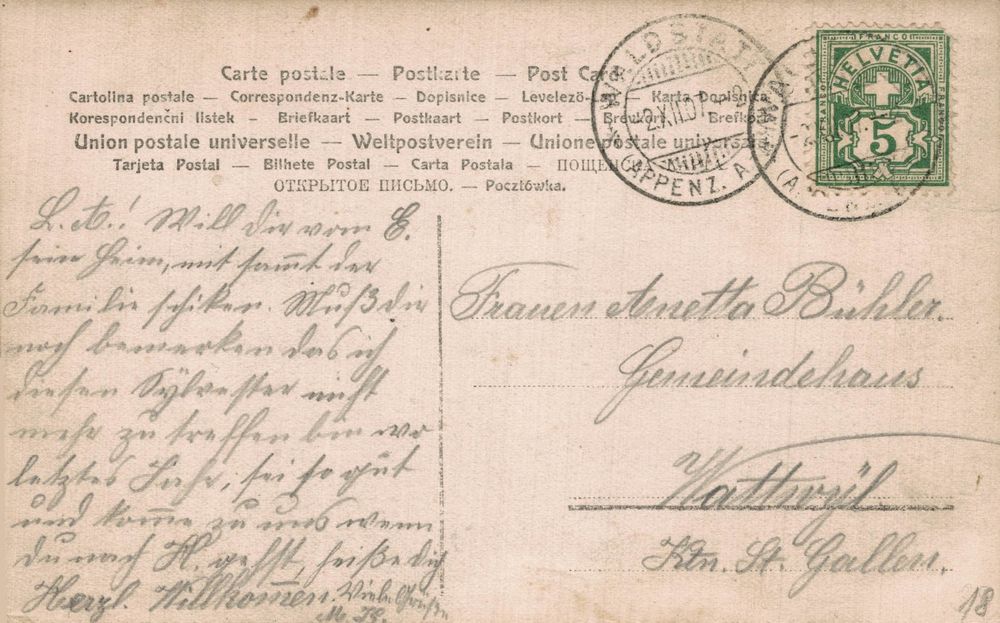 Carte postale — Postkarte — Post Card
Cartolina postale — Correspondenz-Karte — Dopisnice — Levelező- — Karta Dopisnic
Korespondenčni listek — Briefkaart — Postkaart — Postkort — Brevkort — Brefkort
Union postale universelle — Weltpostverein — Unione postale universale
Tarjeta Postal — Bilhete Postal — Carta Postala — ПОЩЕН
ОТКРЫТОЕ ПИСЬМО. — Pocztówka.
WALDSTATT
2.XII.07
(APPENZ. A.
FRANCO
HELVETIA
FRANCO
FRANCO
5
L. A.! Will dir vom E.
sein Heim, mit sammt der
Familie schiken. Muß dir
noch bemerken das ich
diesen Sylvester nicht
mehr zu treffen bin wo
letztes Jahr, sei so gut
und komme zu uns wenn
du nach H. gehst, heiße dich
Herzl. Willkomen. Viele Grüße
Frauen Anetta Bühler.
Gemeindehaus
Wattwyl
Ktn. St. Gallen.
18